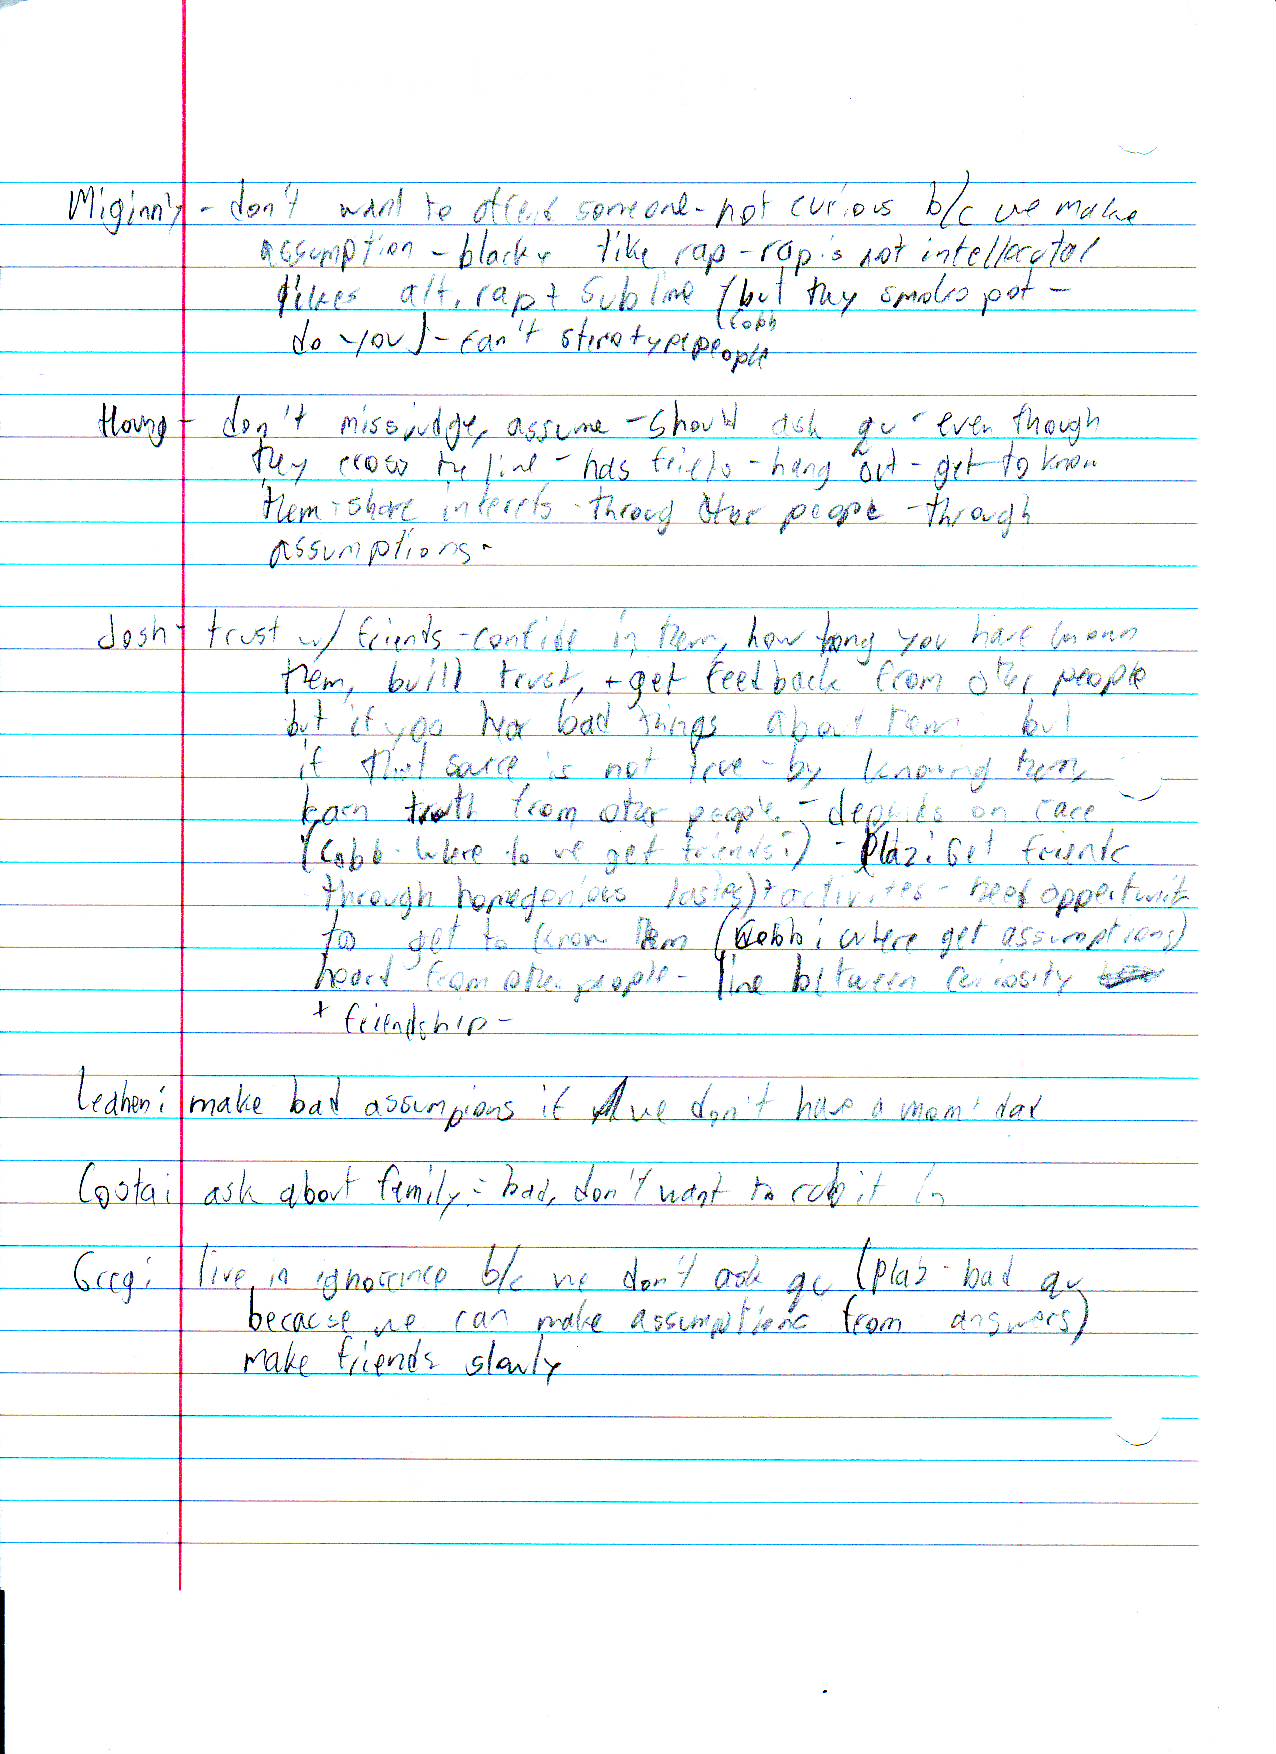 Miginny - don't want to offend someone - not curious b/c we make
assumption - blacks like rap - rap is not intellectual
likes alt, rap + Sublime (but they smoke pot -
do you) - can't sterotype people
(Cobb
Houng - don't missjudge, assume - should ask qu - even though
they cross the line - has friends - hang out - get to know
them - share interets - throug other people - through
assumptions -
Josh - trust w/ friends - confide in them, how long you have known
them, build trust, + get feedback from other people
but if you hear bad things about them but
if that source is not true - by knowing them
learn truth from other people - depends on race
(Cobb - where do we get friends?) - Plaz: Get friends
through homogenious tastes) + activites - need opportunit
too get to know them (Cobb: where get assumptions)
heard from other people - line between curiosity
+ friendship -
Ledhen: make bad assumpions if we don't have a mom + dad
Costa: ask about family = bad, don't want to rub it in
Greg: live in ignorrince b/c we don't ask qu (plaz - bad qu
because we can make assumptions from answers)
make friends slowly